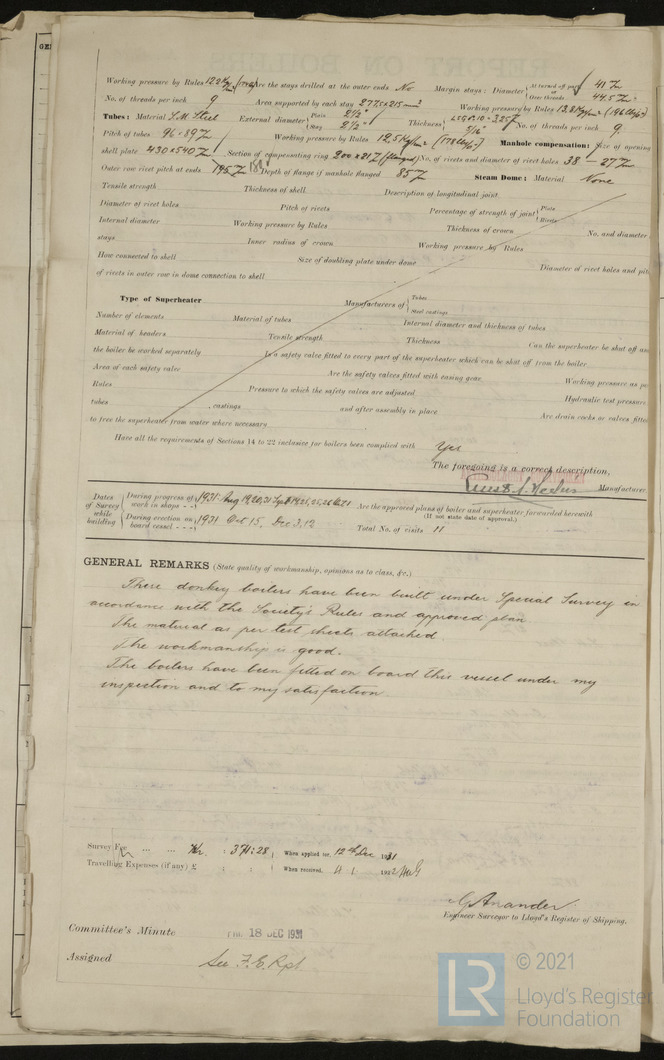 Working pressure by Rules 12.2 Are the stays drilled at the outer ends No Margin stays: Diameter At turned off part or Over threads 41 44.5
No. of threads per inch 9 Area supported by each stay 277.5 x 215 mm² Working pressure by Rules 13.8 (196
Tubes: Material S.M. Steel External diameter Plain Stay 2½" 2½" Thickness 5/16" No. of threads per inch 9.
Pitch of tubes 96 x 89 Working pressure by Rules 12.5 Kg/cm² (178 Manhole compensation: Size of opening
shell plate 430 x 540 Section of compensating ring 200 x 21 (flanged) No. of rivets and diameter of rivet holes 38 - 27
Outer row rivet pitch at ends 195 Depth of flange if manhole flanged 85 Steam Dome: Material None
Tensile strength Thickness of shell Description of longitudinal joint
Diameter of rivet holes Pitch of rivets Percentage of strength of joint Plate Rivets
Internal diameter Working pressure by Rules Thickness of crown No. and diameter
stays Inner radius of crown Working pressure by Rules
How connected to shell Size of doubling plate under dome Diameter of rivet holes and pit
of rivets in outer row in dome connection to shell
Type of Superheater Manufacturers of Tubes Steel castings
Number of elements Material of tubes Internal diameter and thickness of tubes
Material of headers Tensile strength Thickness Can the superheater be shut off an
the boiler be worked separately Is a safety valve fitted to every part of the superheater which can be shut off from the boiler
Area of each safety valve Are the safety valves fitted with easing gear Working pressure as pe
Rules Pressure to which the safety valves are adjusted Hydraulic test pressure
tubes , castings and after assembly in place Are drain cocks or valves fitted
to free the superheater from water where necessary
Have all the requirements of Sections 14 to 22 inclusive for boilers been complied with Yes
The foregoing is a correct description,
Manufacturer
Dates of Survey while building During progress of work in shops - - 1931 Aug 19, 20, 31 Sept Are the approved plans of boiler and superheater forwarded herewith
(If not state date of approval.)
During erection on board vessel - - - 1931 Oct 15, Dec 3, 12 Total No. of visits 11
GENERAL REMARKS (State quality of workmanship, opinions as to class, &c.)
These donkey boilers have been built under Special Survey in
accordance with the Society's Rules and approved plan
The material as per test sheets attached.
The workmanship is good.
The boilers have been fitted on board this vessel under my
inspection and to my satisfaction
Survey Fee ... ... Kr. : 371 : 28 When applied for, 12th Dec 1931
Travelling Expenses (if any) £ : : When received, 4 1. 1932
G. Anander
Engineer Surveyor to Lloyd's Register of Shipping.
Committee's Minute 18 DEC 1931
Assigned See F.E. Rpt
LR © 2021
Lloyd's Register
Foundation